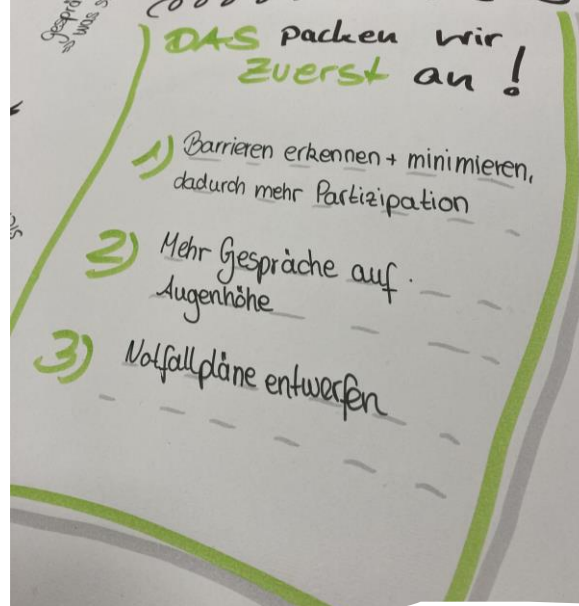 Gesprä
was s
DAS packen wir
zuerst an!
1) Barrieren erkennen + minimieren,
dadurch mehr Partizipation
2) Mehr Gespräche auf
Augenhöhe
3) Notfallpläne entwerfen